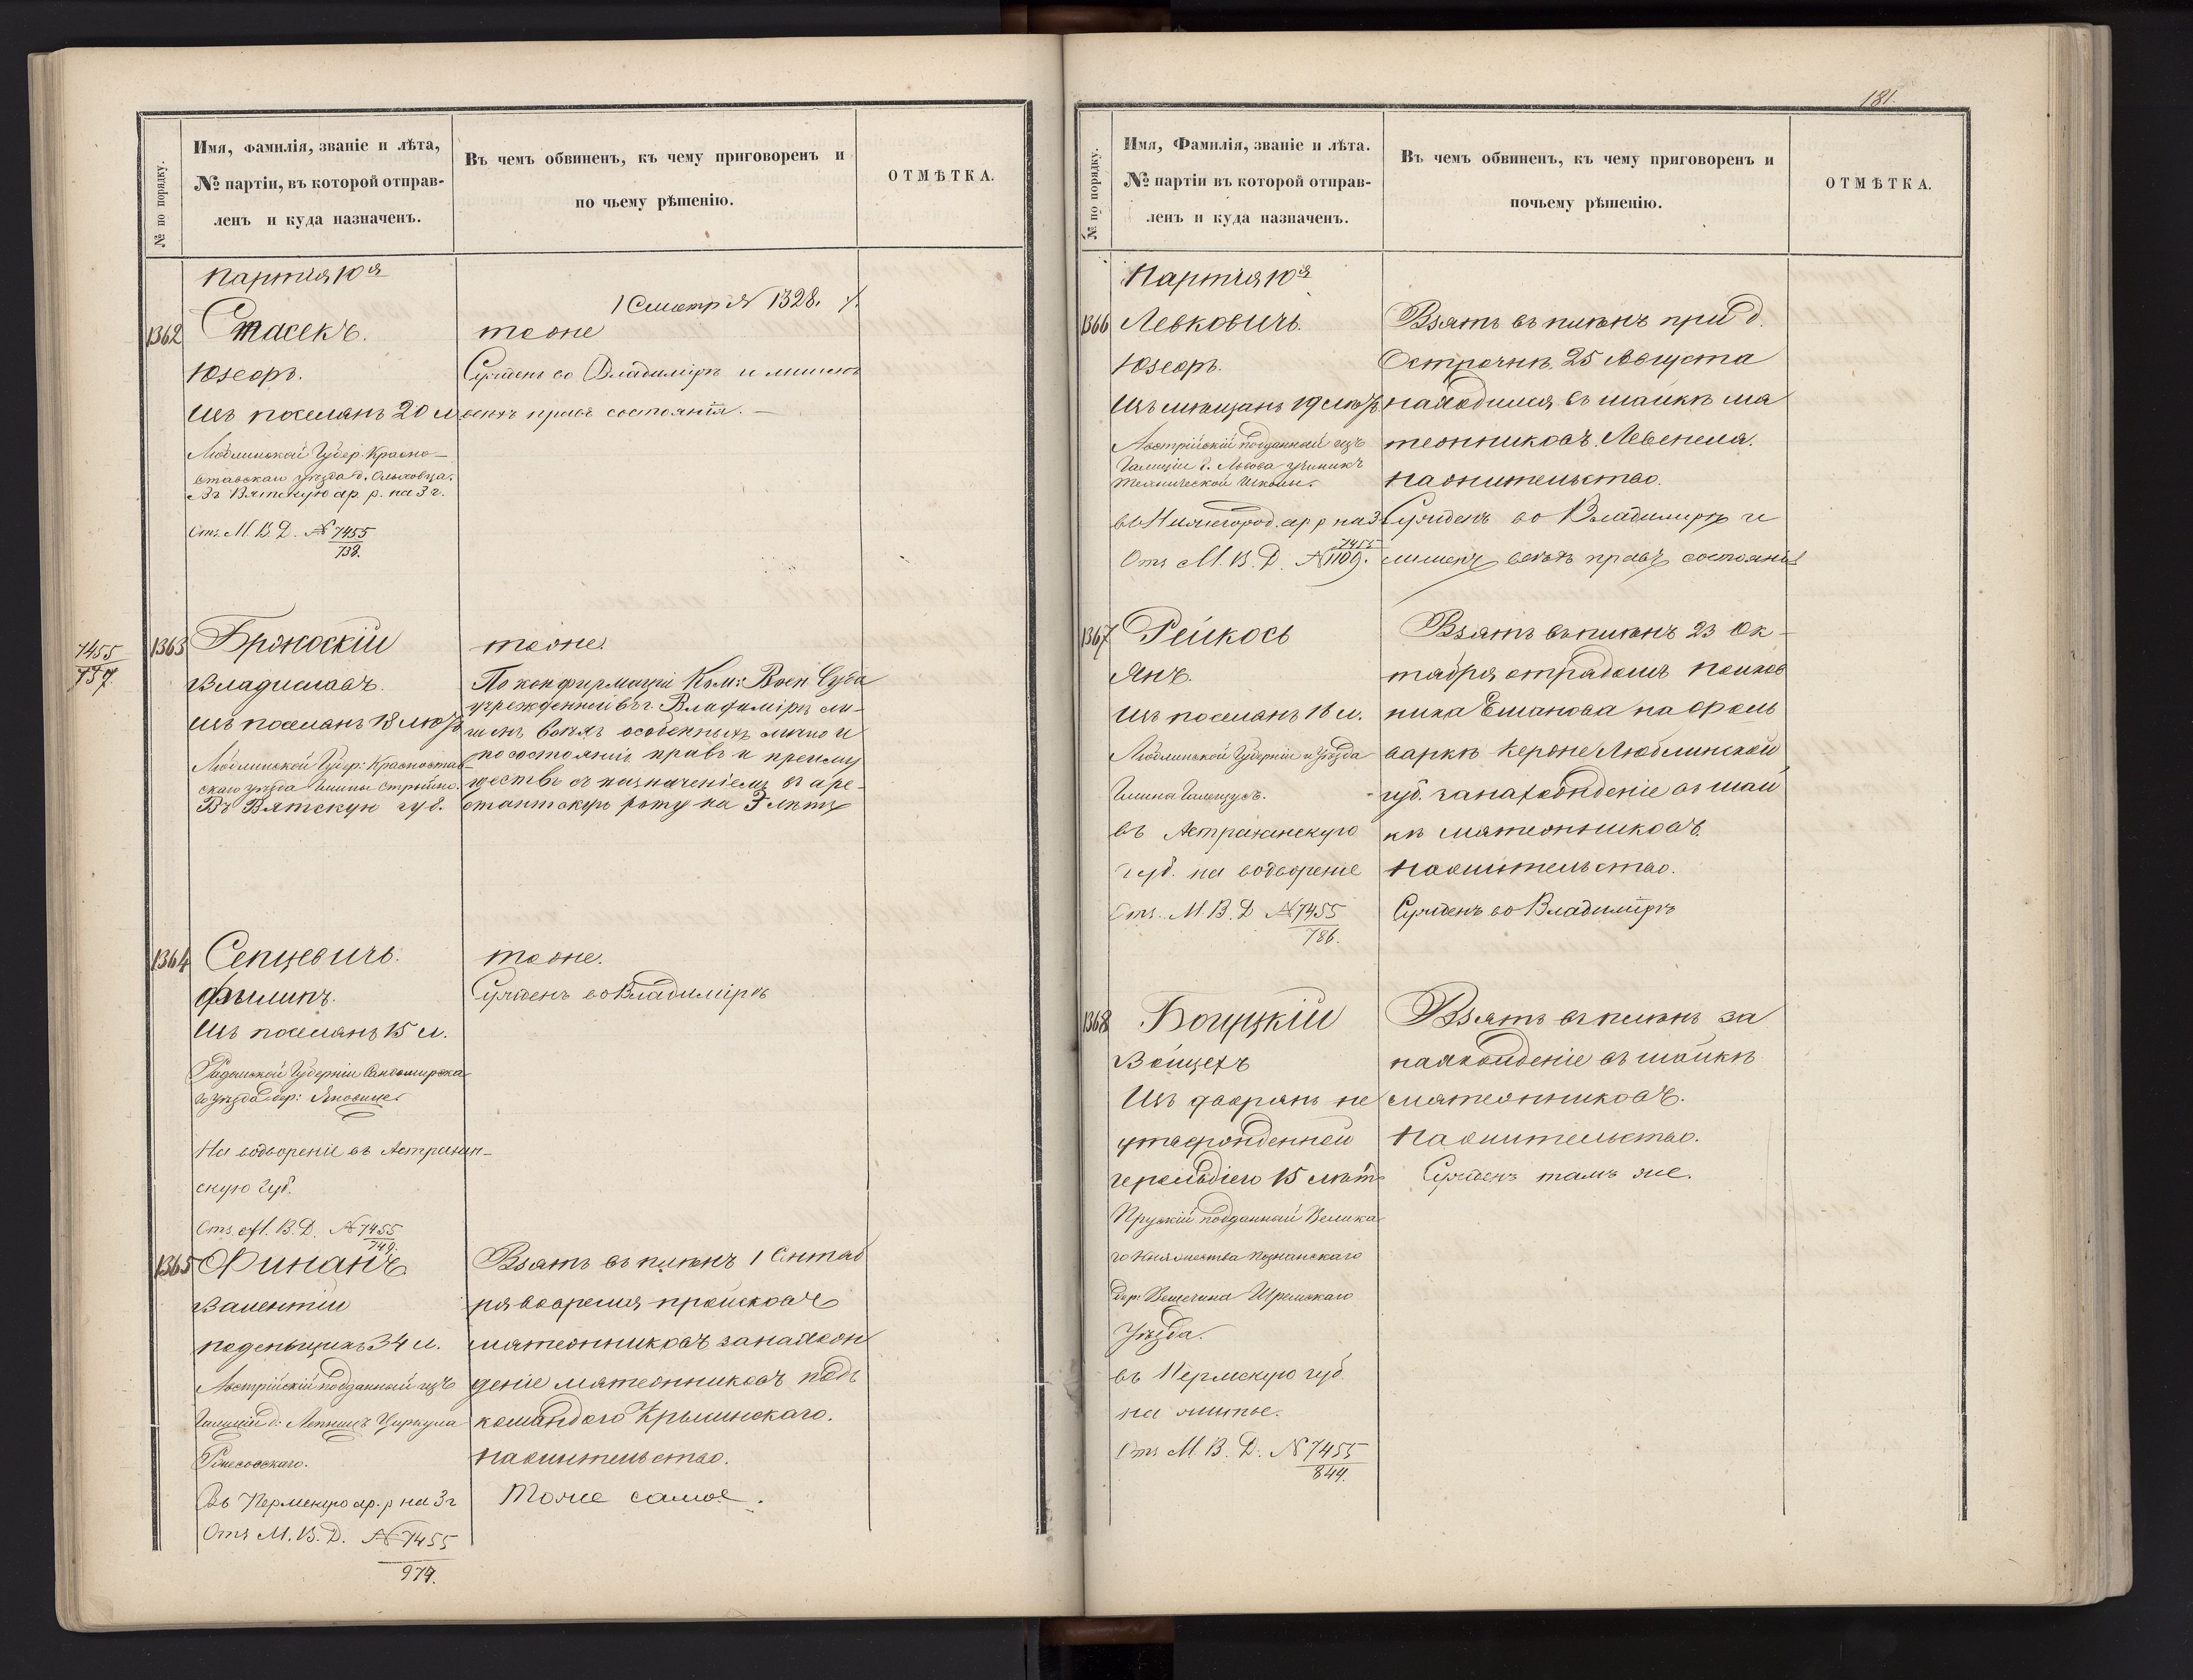 № по порядку.
Имя, фамилія, званіе и лѣта,
№ партіи, въ которой отправ-
ленъ и куда назначенъ.
Въ чемъ обвиненъ, къ чему приговоренъ и
по чьему рѣшенію.
ОТМѢТКА.
Партія 10я
1362
Стасекъ.
Юзефъ.
Изъ поселянъ 20 л
Люблинской Губер. Красно-
ставскаго уѣзда д. Ольховца.
Въ Вятскую ар. р. на 3 г.
Отъ М. В. Д. № 7455
738.
Смотр № 1328.
тоже
Сужденъ во Владимірѣ и лишенъ
всѣхъ правъ состоянія.
7455
737.
1363
Бржоскій
Владиславъ.
Изъ поселянъ 18 лѣтъ
Люблинской Губер: Красностав-
скаго уѣзда Гмины
Въ Вятскую губ.
тоже.
По конфирмаціи Ком: Воен. Суда
учрежденной въ г. Владимірѣ ли-
шенъ всѣхъ особенныхъ лично и
по состоянію правъ и преиму
ществъ съ назначеніемъ въ аре-
стантскую роту на 3 лѣтъ
1364
Сепцевичъ.
Филипъ.
Изъ поселянъ 15 л.
Радомской Губерніи Сандомирска
го уѣзда дер:
На водвореніе въ Астрахан-
скую Губ.
Отъ М. В. Д. № 7455
749.
тоже.
Сужденъ во Владимірѣ
1365
Финанъ
Валентій
поденьщикъ 34 л.
Австрійскій подданный изъ
Галиціи д. Циркула
Ржесовскаго.
Въ Пермскую ар. р на 3 г
Отъ М. В. Д. № 7455
974.
Взятъ въ плѣнъ 1 Сентяб
ря во время происковъ
мятежниковъ за нахож
деніе мятежниковъ подъ
командою Крысинскаго.
Насительство.
Тоже самое.
181.
№ по порядку.
Имя, Фамилія, званіе и лѣта.
№ партіи въ которой отправ-
ленъ и куда назначенъ.
Въ чемъ обвиненъ, къ чему приговоренъ и
почьему рѣшенію.
ОТМѢТКА.
Партія 10я
1366
Левковичъ.
Юзефъ.
Изъ мѣщанъ 19 лѣтъ
Австрійскій подданный изъ
Галиціи г. Львова ученикъ
технической школы.
въ Нижегород. ар р на 3
Отъ М. В. Д. № 7455
1109.
Взятъ въ плѣнъ при д.
25 Августа
находился въ шайкѣ мя
тежниковъ Левенеля.
Сужденъ во Владимірѣ и
лишенъ всѣхъ правъ состоянія
1367
Рейкось
Янъ.
Изъ поселянъ 18 л.
Люблинской Губерніи и Уѣзда
Гмина
въ Астраханскую
губ. на водвореніе
Отъ М. В. Д № 7455
786.
Взятъ въ плѣнъ 23 Ок-
тября отрядомъ Полков
ника Еманова на фоль
варкѣ Люблинской
губ. за нахожденіе въ шай
кѣ мятежниковъ.
Сужденъ во Владимірѣ
1368
Боцуцкій
Войцехъ
Изъ дворянъ не
утвержденной
герольдіею 15 лѣтъ
Пруcкій подданный Велика
го Княжества Познанскаго
дер. Шремскаго
Уѣзда.
въ Пермскую губ.
на житье.
Отъ М. В. Д. № 7455
844.
Взятъ въ плѣнъ за
нахожденіе въ шайкѣ
мятежниковъ.
Сужденъ тамъ же.